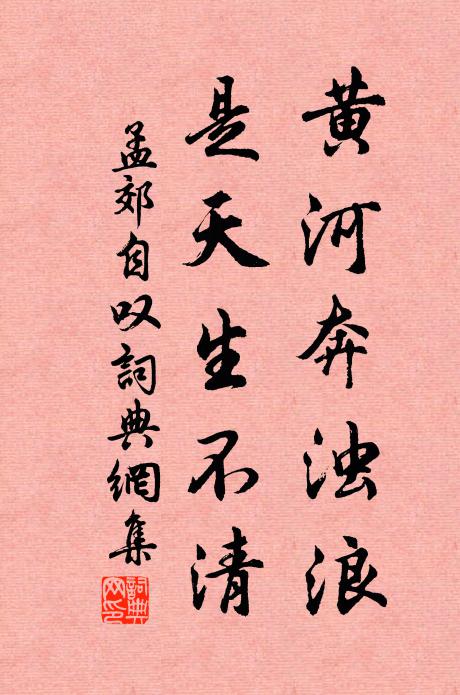 黄河奔浊浪
是天生不清
孟郊自叹詞典網集
詞典
网印